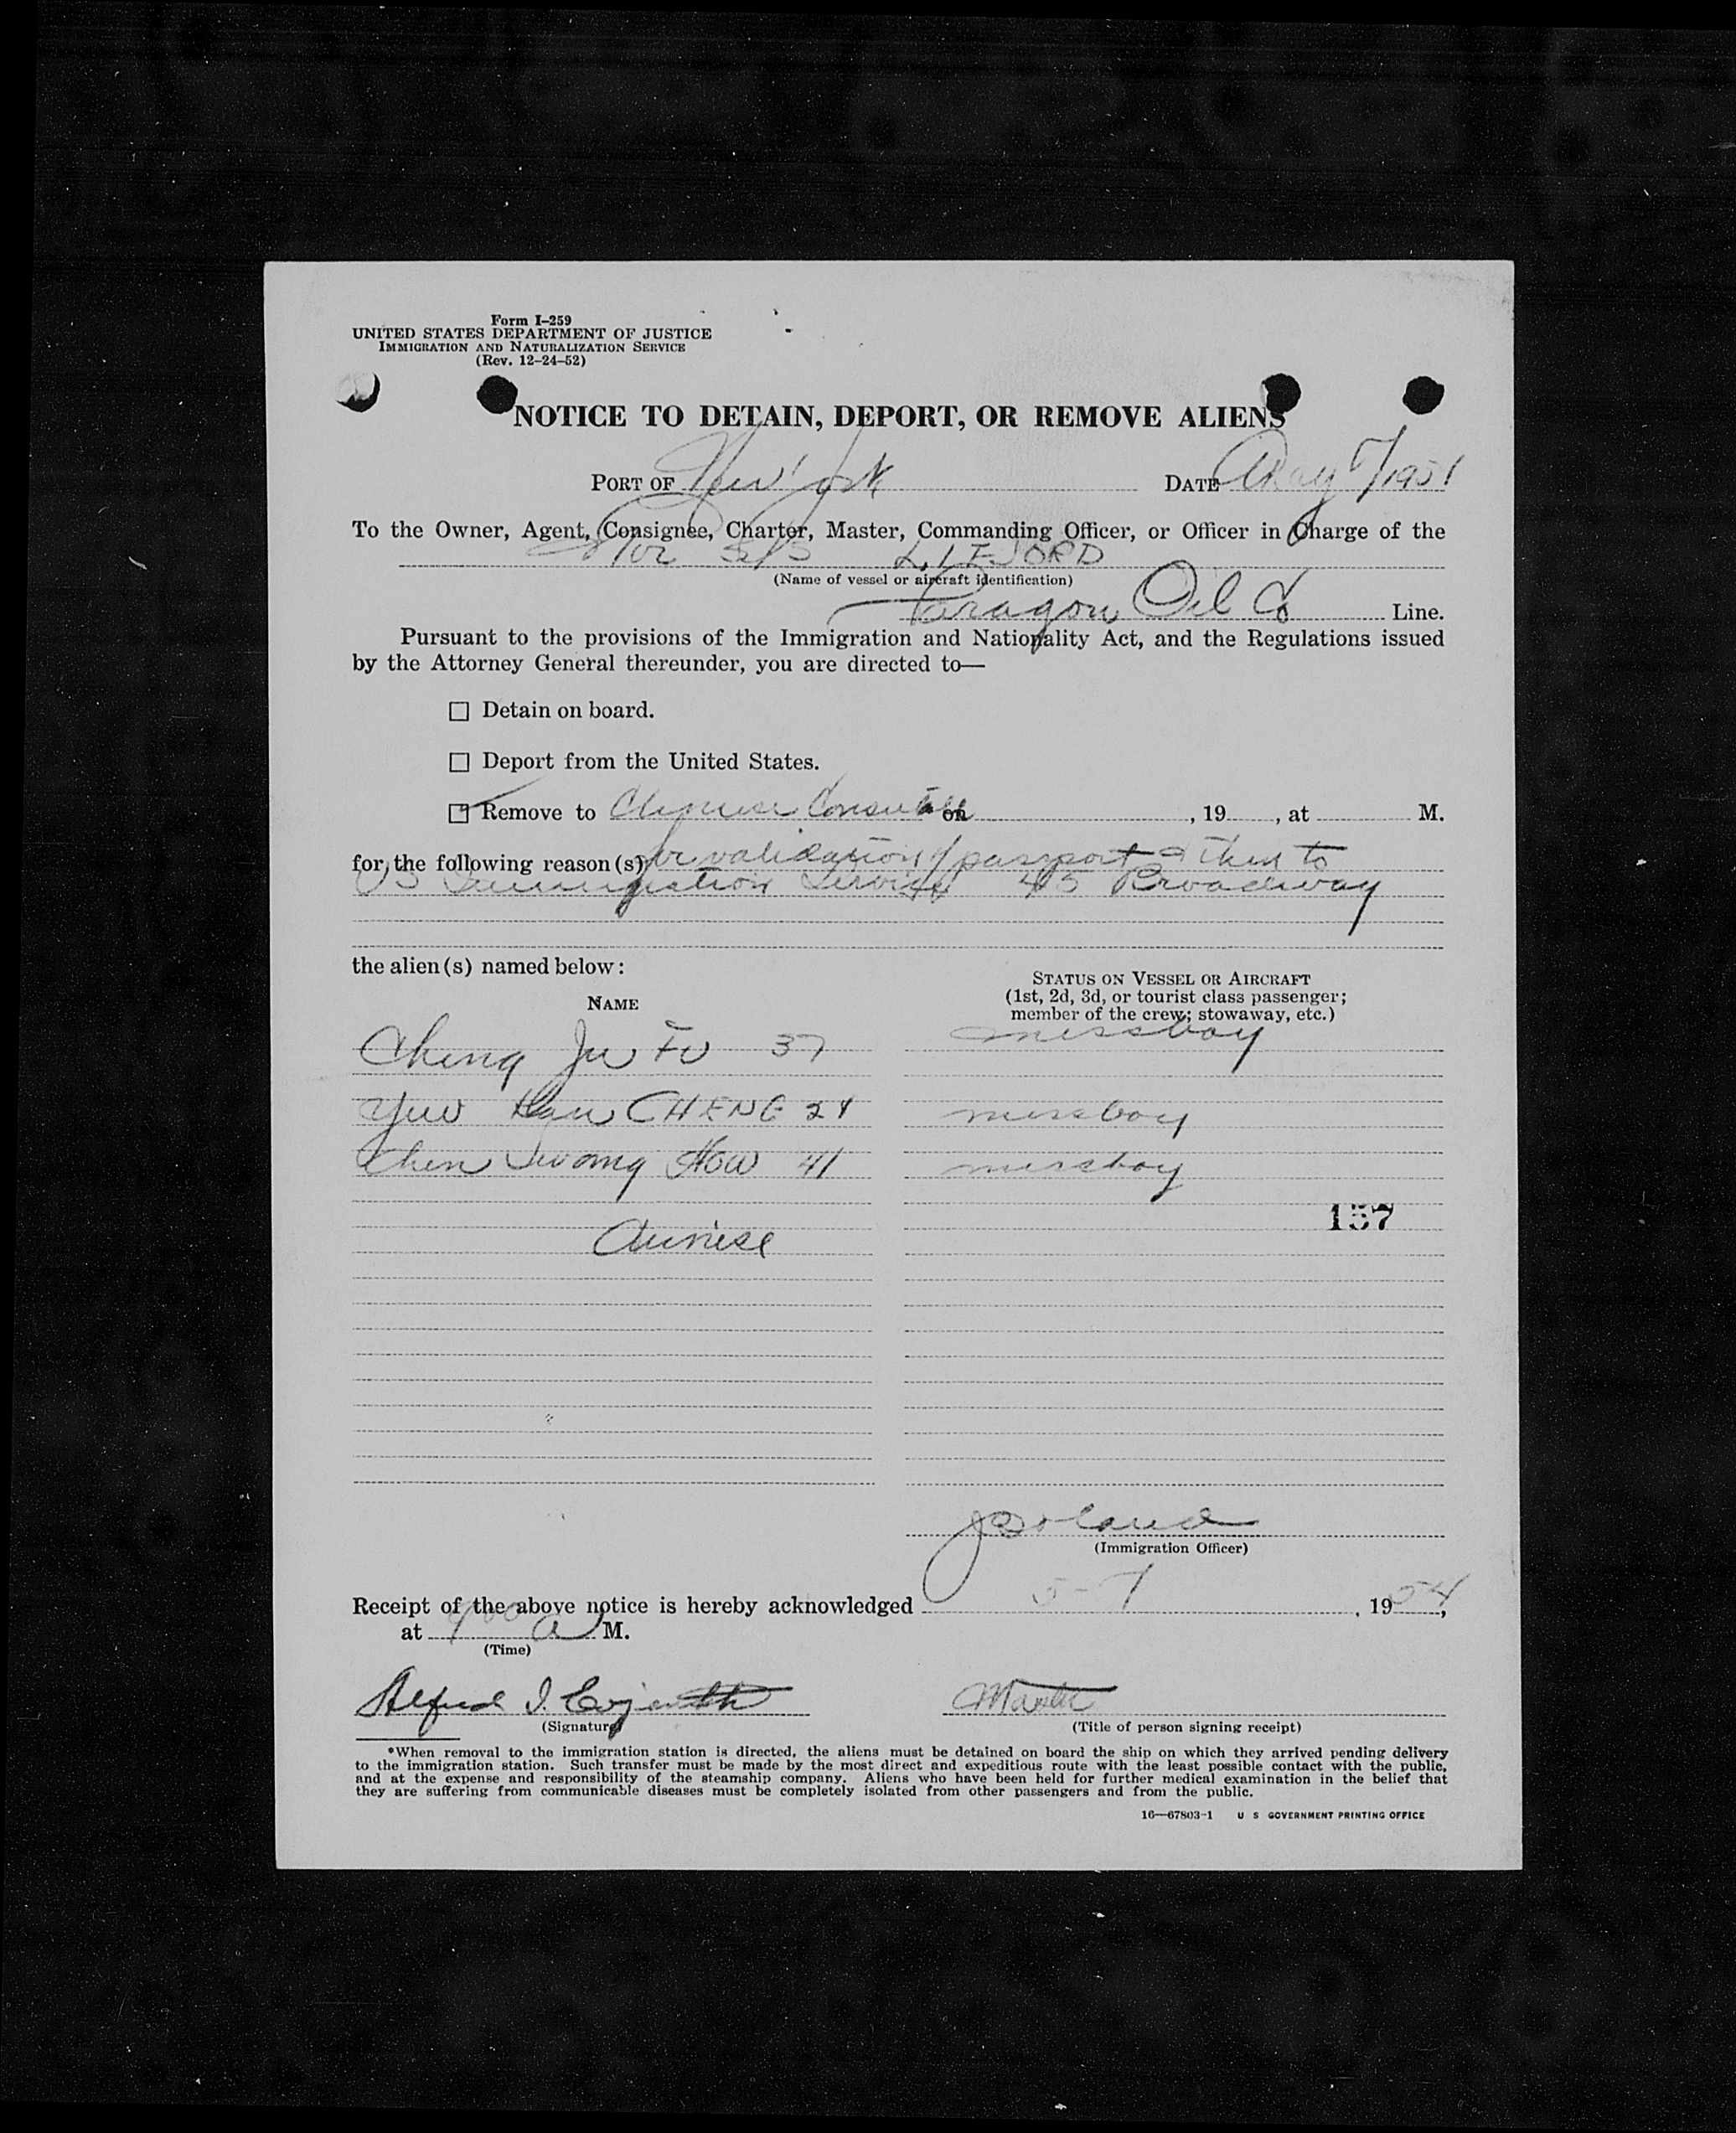 Form I-259
UNITED STATES DEPARTMENT OF JUSTICE
IMMIGRATION AND NATURALIZATION SERVICE
(Rev. 12-24-52)
NOTICE TO DETAIN, DEPORT, OR REMOVE ALIENS
PORT OF New York DATE May 7/195
To the Owner, Agent, Consignee, Charter, Master, Commanding Officer, or Officer in Charge of the
Nor S/S
(Name of vessel or aircraft identification)
Paragon Oil Co Line.
Pursuant to the provisions of the Immigration and Nationality Act, and the Regulations issued
by the Attorney General thereunder, you are directed to—
☐ Detain on board.
☐ Deport from the United States.
☑ Remove to Chinese Consulate on , 19 , at M.
for the following reason(s) for validation of passport & then to
US Immigration Service 45 Broadway
the alien(s) named below:
NAME
STATUS ON VESSEL OR AIRCRAFT
(1st, 2d, 3d, or tourist class passenger;
member of the crew; stowaway, etc.)
Cheng Ju Fu 37 messboy
Yuw CHENG 24 messboy
Chen How 41 messboy
157
Chinese
J Boland
(Immigration Officer)
Receipt of the above notice is hereby acknowledged 5-7 , 1954,
at 900 A M.
(Time)
Alfred I.
Master
(Signature)
(Title of person signing receipt)
*When removal to the immigration station is directed, the aliens must be detained on board the ship on which they arrived pending delivery
to the immigration station. Such transfer must be made by the most direct and expeditious route with the least possible contact with the public,
and at the expense and responsibility of the steamship company. Aliens who have been held for further medical examination in the belief that
they are suffering from communicable diseases must be completely isolated from other passengers and from the public.
16—67803-1 U S GOVERNMENT PRINTING OFFICE